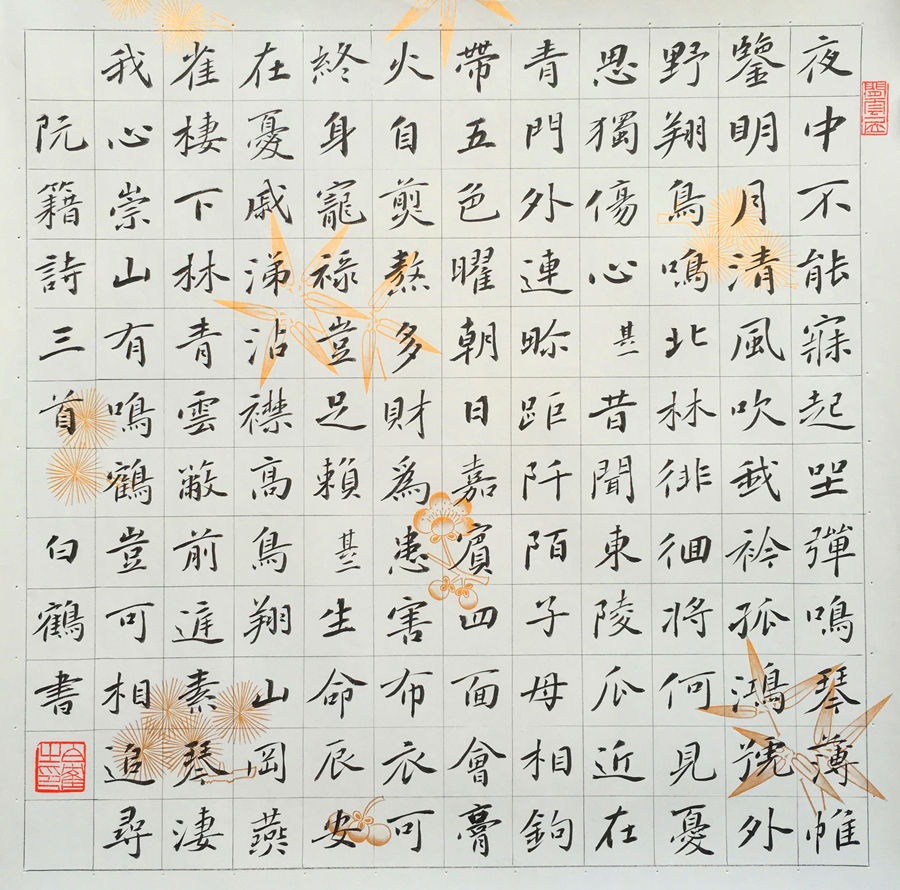 夜中不能寐起坐彈鳴琴薄帷
鑒明月清風吹我衿孤鴻號外
野翔鳥鳴北林徘徊將何見憂
思獨傷心 其一 昔聞東陵瓜近在
青門外連畛距阡陌子母相鉤
帶五色曜朝日嘉賓四面會膏
火自煎熬多財爲患害布衣可
終身寵祿豈足賴 其二 生命辰安
在憂戚涕沾襟高鳥翔山岡燕
雀棲下林青雲蔽前庭素琴淒
我心崇山有鳴鶴豈可相追尋
阮籍詩三首 白鶴書